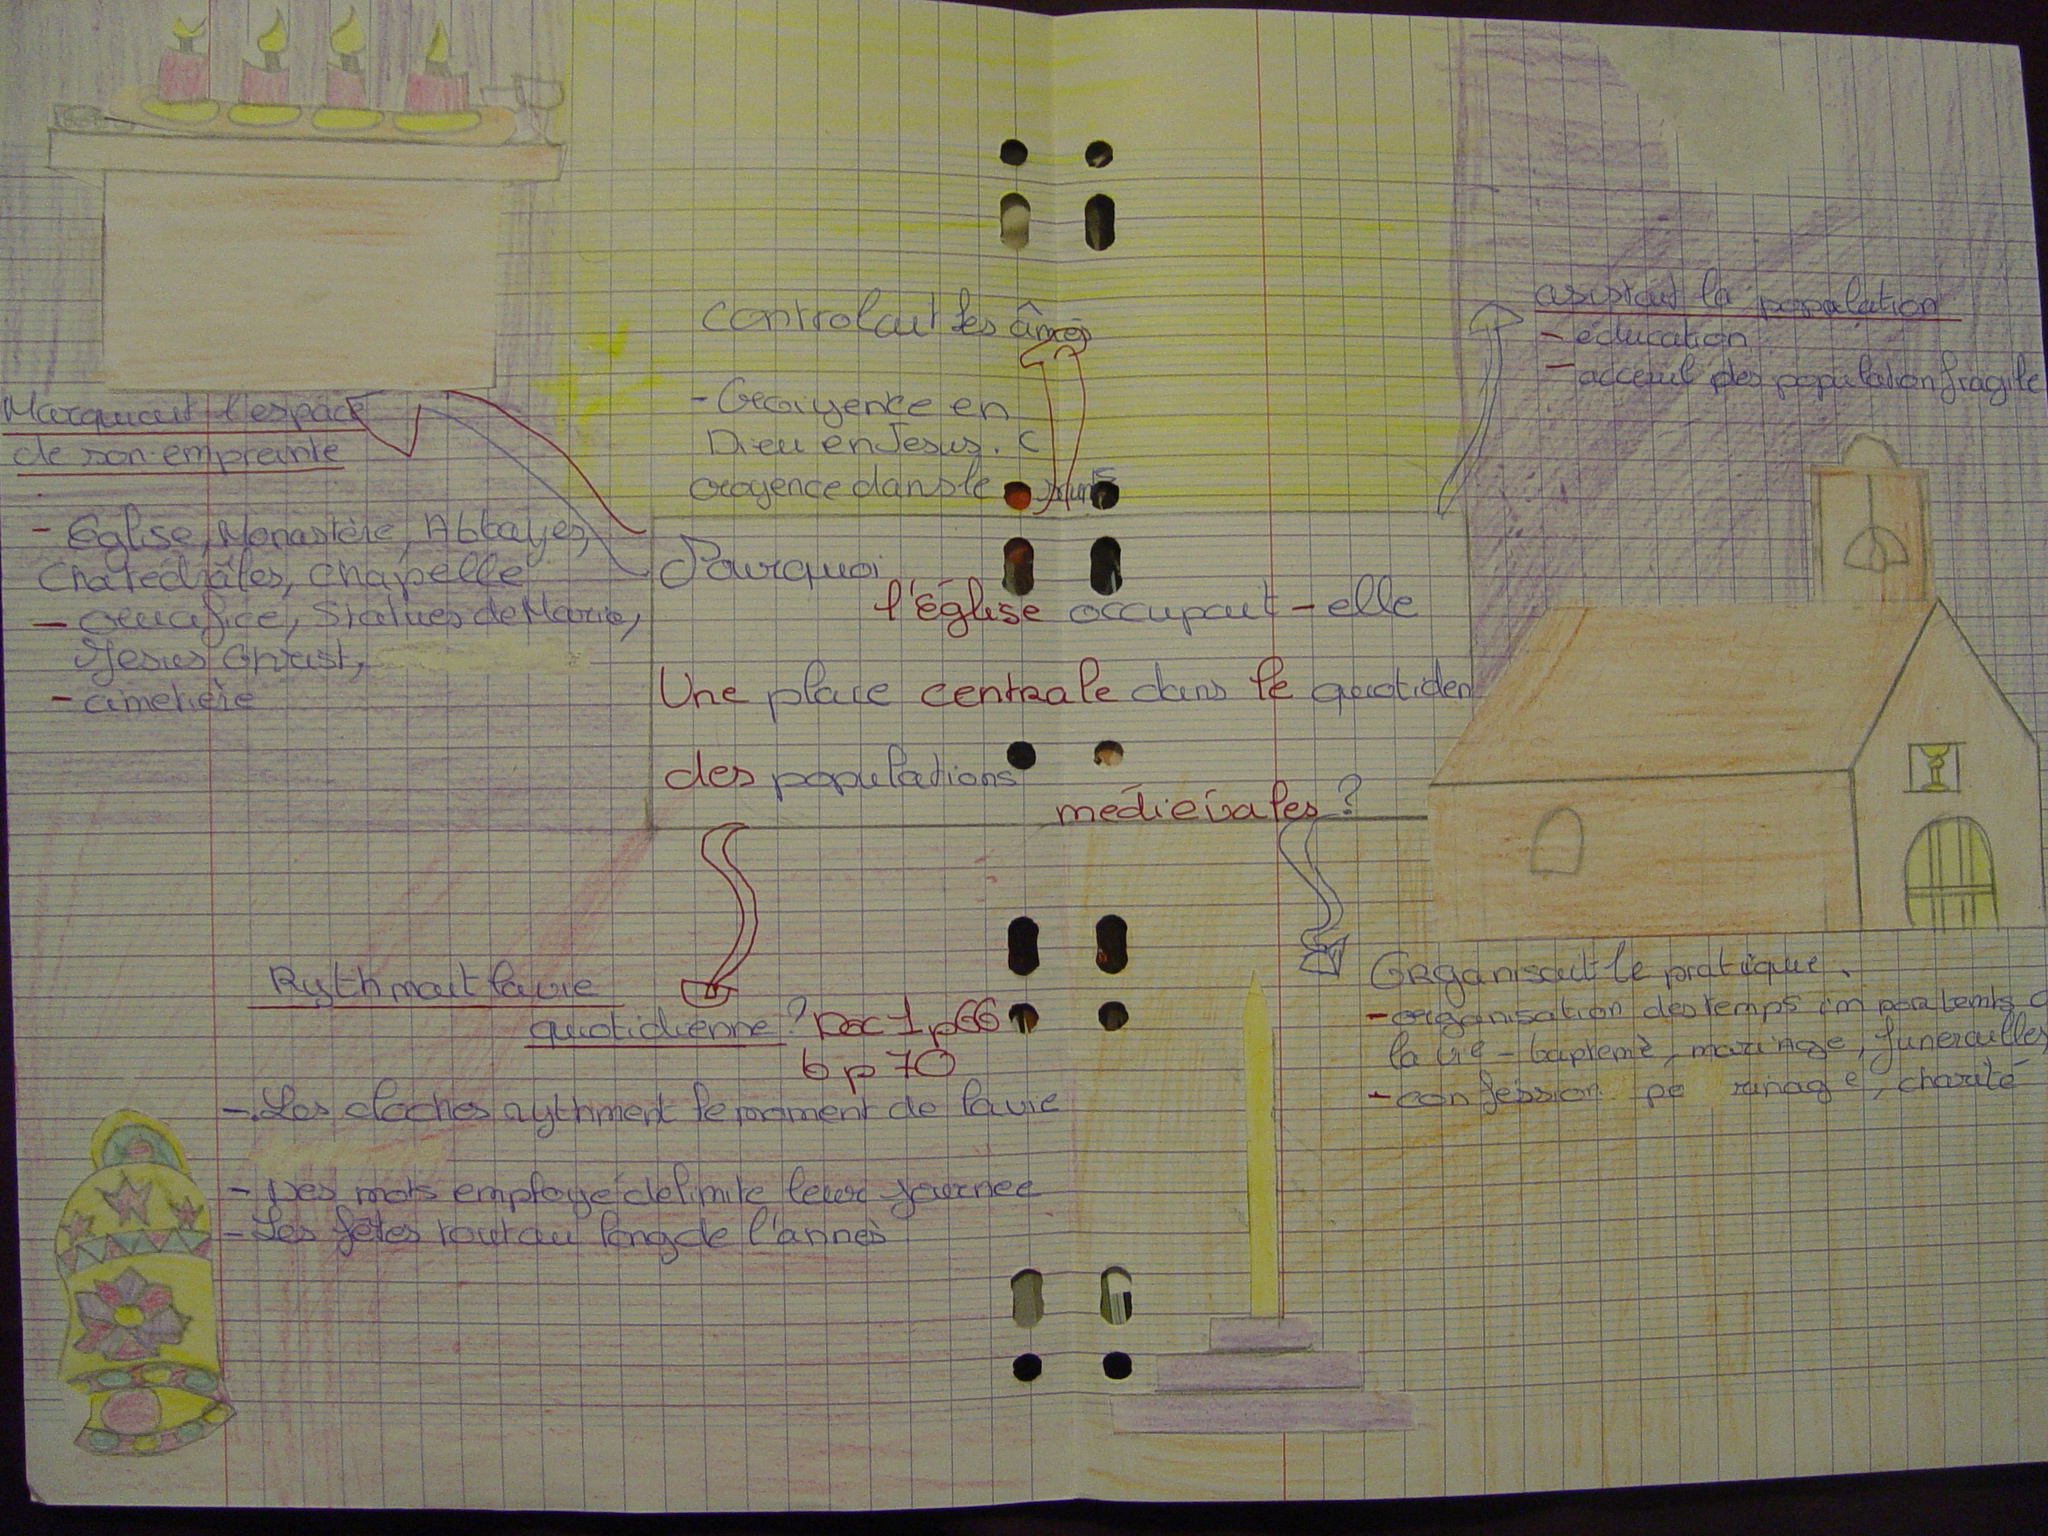 Controlait les âmes
- Croiyence en
Dieu en Jesus. C
croyence dans le
assistait la population
- éducation
- acceuil des population fragile
Marquait l'espace
de son empreinte
- Église, Monastère, Abbayes,
Chatédrâles, chapelle
- crucifice, Statues de Marie,
Jesus Christ,
- cimetière
Pourquoi
l'Église occupait-elle
Une place centrale dans le quotiden
des populations
médieivales ?
Rythmait la vie
quotidienne ? Doc 1 p66
6 p 70
- Les cloches rythment le moment de la vie
- Des mots employé delimite leur journee
- Les fêtes tout au long de l'année
Organisait le pratique.
- organisation des temps importents d
la vie - bapteme, mariage, funerailles
- confession pe rinage, charité